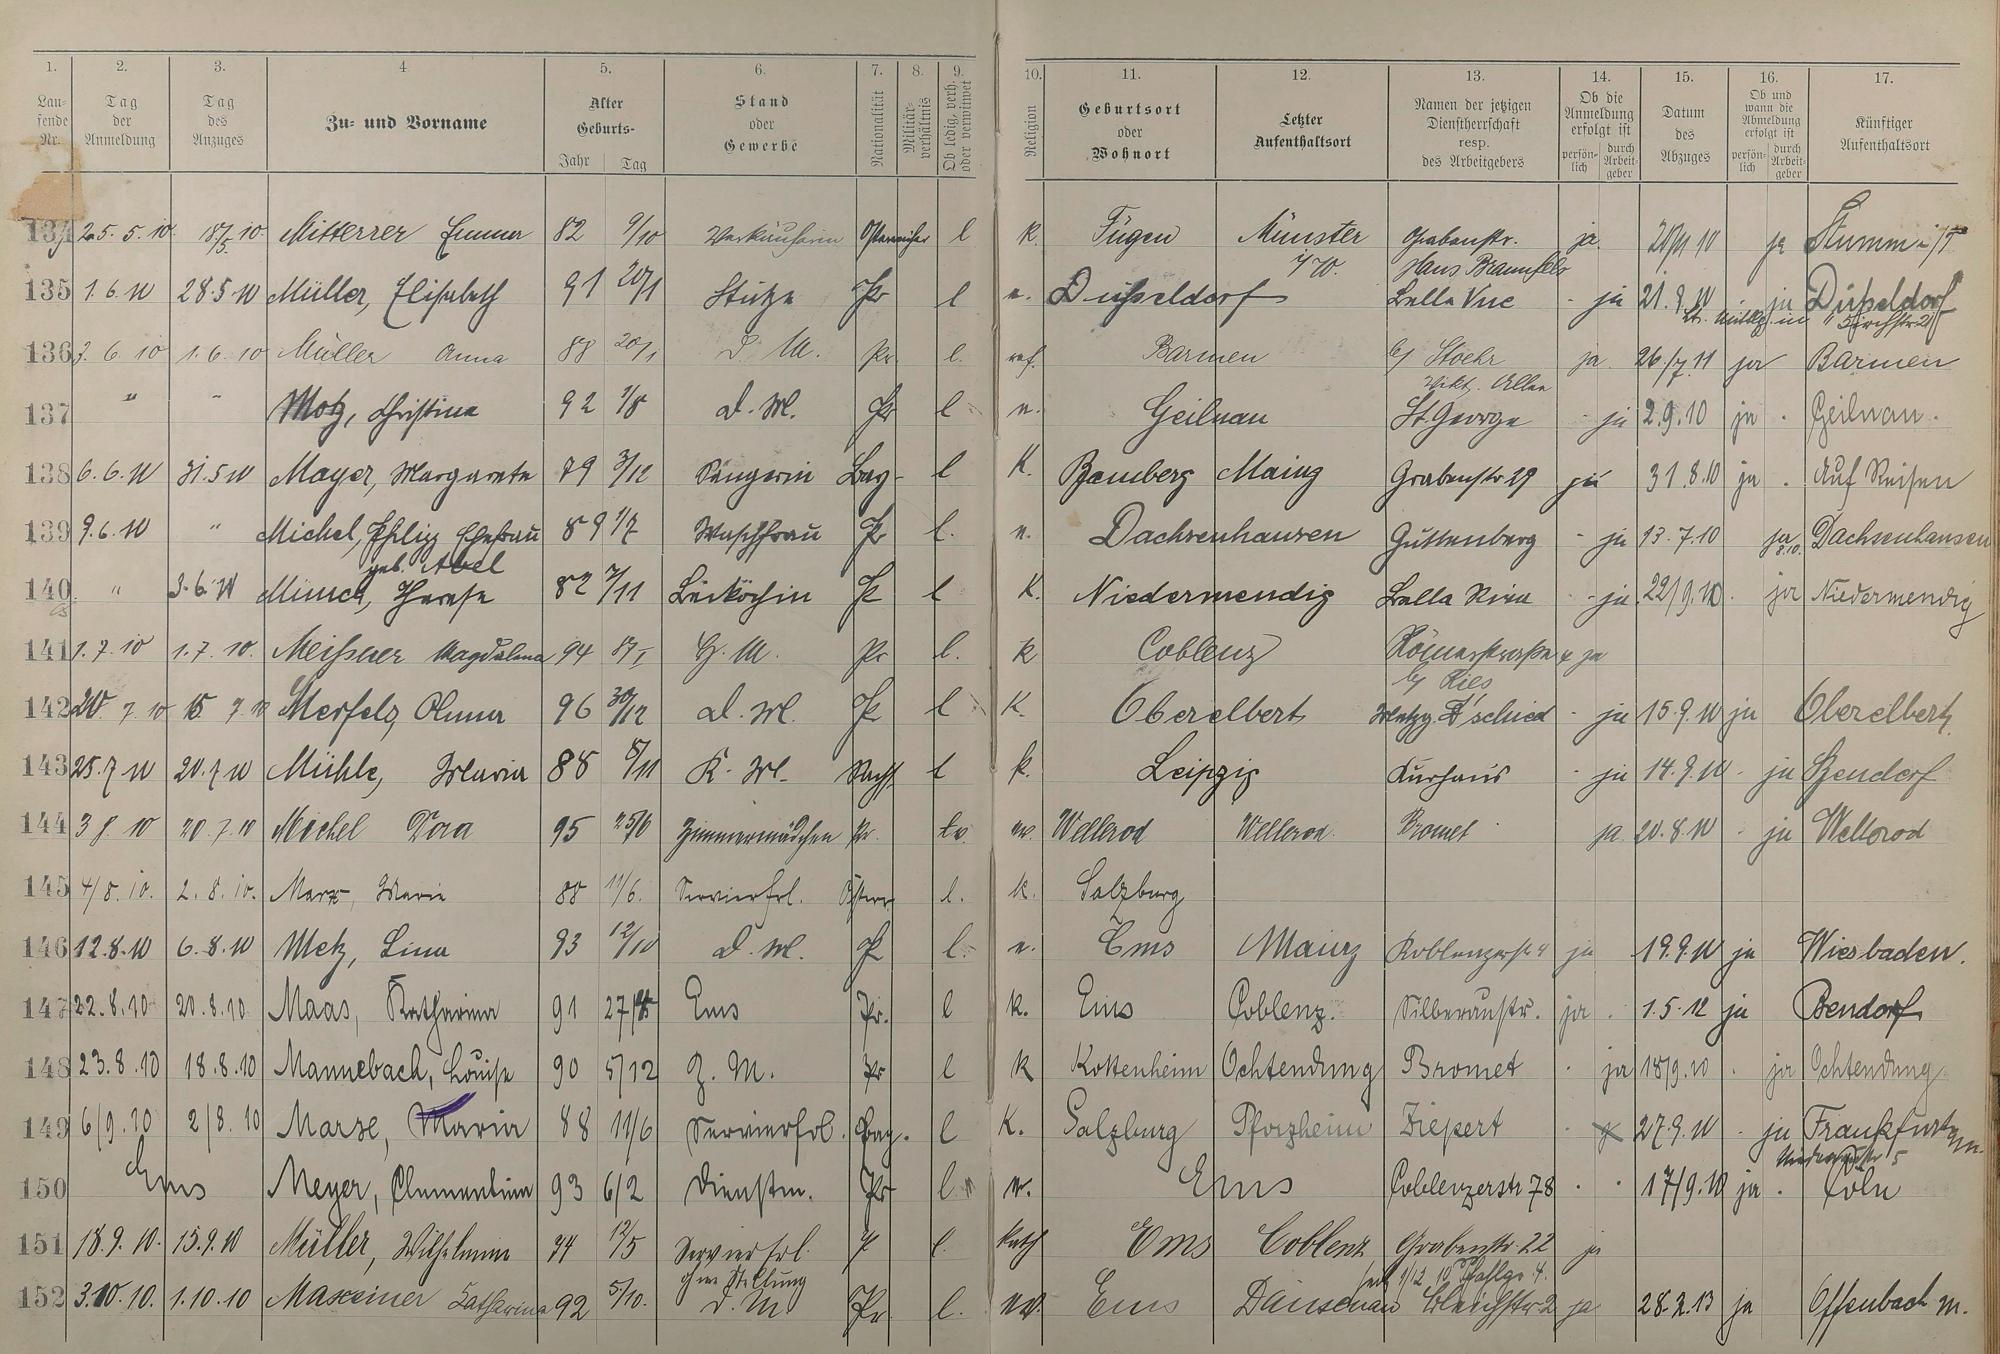 1. 2. 3. 4. 5. 6. 7. 8. 9. 10. 11. 12. 13. 14. 15. 16. 17.
Lau-fende Nr. Tag der Anmeldung Tag des Anzuges Zu- und Vorname Alter Geburts- Jahr Tag Stand oder Gewerbe Nationalität Militär-verhältnis Ob ledig, verh. oder verwitwet Religion Geburtsort oder Wohnort Letzter Aufenthaltsort Namen der jetzigen Dienstherrschaft resp. des Arbeitgebers Ob die Anmeldung erfolgt ist persön-lich durch Arbeit-geber Datum des Abzuges Ob und wann die Abmeldung erfolgt ist persön-lich durch Arbeit-geber Künftiger Aufenthaltsort
134 25.5.10 18/5.10 Mitterrer Emma 82 9/10 Verkäuferin Österreicher l k. Fügen Münster Grabenstr. ja. ja Stumm
Haus Braunfels
135 1.6.10 28.5.10 Müller, Elisabeth 91 20/1 Stütze Pr l e. Düsseldorf Bella Vue - ja 21.9.10 - ja Düsseldorf
136 3.6.10 1.6.10 Müller Anna 88 20/1 D. M. Pr. l. ref. Barmen b/ Stoehr ja 26/7.11 ja Barmen
Vikt. Allee
137 " " Motz, Christina 92 1/8 D. M. Pr l e. Geilnau St. George - ja 2.9.10 ja . Geilnau.
138 6.6.10 31.5.10 Mayer, Margarete 79 3/12 Sängerin Bay- l K. Bamberg Mainz Grabenstr 29 ja 31.8.10 ja . Auf Reisen
139 9.6.10 " Michel, Phlipp Ehefrau 89 1/7 Waschfrau Pr l. e. Dachsenhausen Guttenberg - ja 13.7.10 ja 8.10. Dachsenhausen
geb. Abel
140 " 3.6.10 Münch, Therese 82 7/11 Beiköchin Pr l K. Niedermendig Bella Riva - ja 22/9.10. ja Niedermendig
141 1.7.10 1.7.10. Meißner Magdalena 94 G. M. Pr l. k Coblenz Römerstrasse ja
b/ Ries
142 20.7.10 15.7.10 Merfels, Anna 96 30/12 D. M. Pr l K. Oberelbert Metzg. D'schied - ja 15.9.10 ja Oberelbert.
143 25.7.10 20.7.10 Mühle, Maria 88 8/11 K. M. Sachs. l k. Leipzig Kurhaus - ja 14.9.10 - ja Bendorf
144 3.8.10 20.7.10 Michel Dora 95 25/6 Zimmermädchen Pr. ev. Wellerod Wellerod. Bromet ja 20.8.10 - ja Wellerod
145 4/8.10. 2.8.10. Marx, Marie 88 11/6. Servierfrl. Österr. l. k. Salzburg
146 12.8.10 6.8.10 Metz, Lina 93 12/10 D. M. Pr l. e. Ems Mainz Koblenzerstr 4 ja 19.9.10 ja Wiesbaden.
147 22.8.10 20.8.10 Maas, Katharina 91 Ems Pr. l k. Ems Coblenz. Silberaustr. ja . 1.5.12 ja Bendorf
148 23.8.10 18.8.10 Mannebach, Louise 90 5/12 Z. M. Pr l k Kottenheim Ochtendung Bromet . ja 18/9.10 . ja Ochtendung
149 6/9.10 2/8.10 Marse, Maria 88 11/6 Servierfrl. Bay. l K. Salzburg Pforzheim Ziepert . 27.9.10 - ja Frankfurt
150 Ems Meyer, Clementina 93 6/2 Dienstm. Pr l. Ems Coblenzerstr 78 . . 17/9.10 ja . Cöln
151 18.9.10. 15.9.10 Müller, Wilhelmine 12/5 Servierfrl. P l. Kath Ems Coblenz Grabenstr. 22 ja
ohne Stellung seit 1/12 10 Pfahlgr. 4.
152 3.10.10. 1.10.10 Maxeiner Katharina 92 5/10. D. M Pr. l. ev. Ems Dausenau Bleichstr 2 ja 28.2.13 ja Offenbach M.